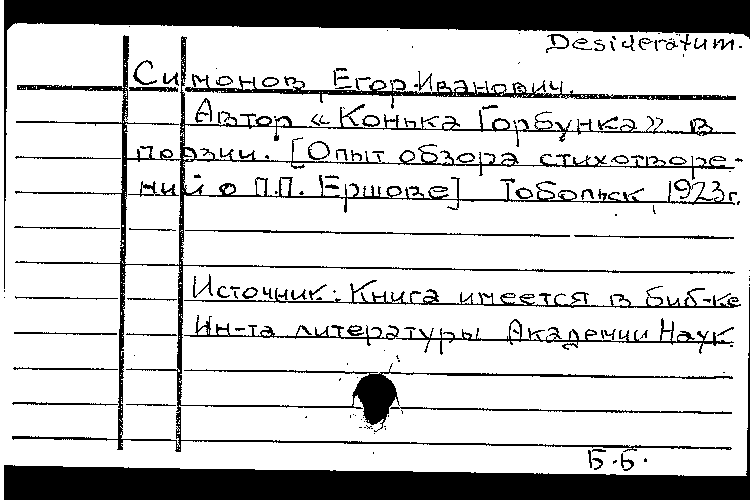 Desideratum.
Симонов, Егор Иванович.
Автор «Конька Горбунка» в
поэзии. [Опыт обзора стихотворе-
ний о П.П. Ершове] Тобольск, 1923г.
Источник: Книга имеется в биб-ке
Ин-та литературы Академии Наук.
Б.Б.